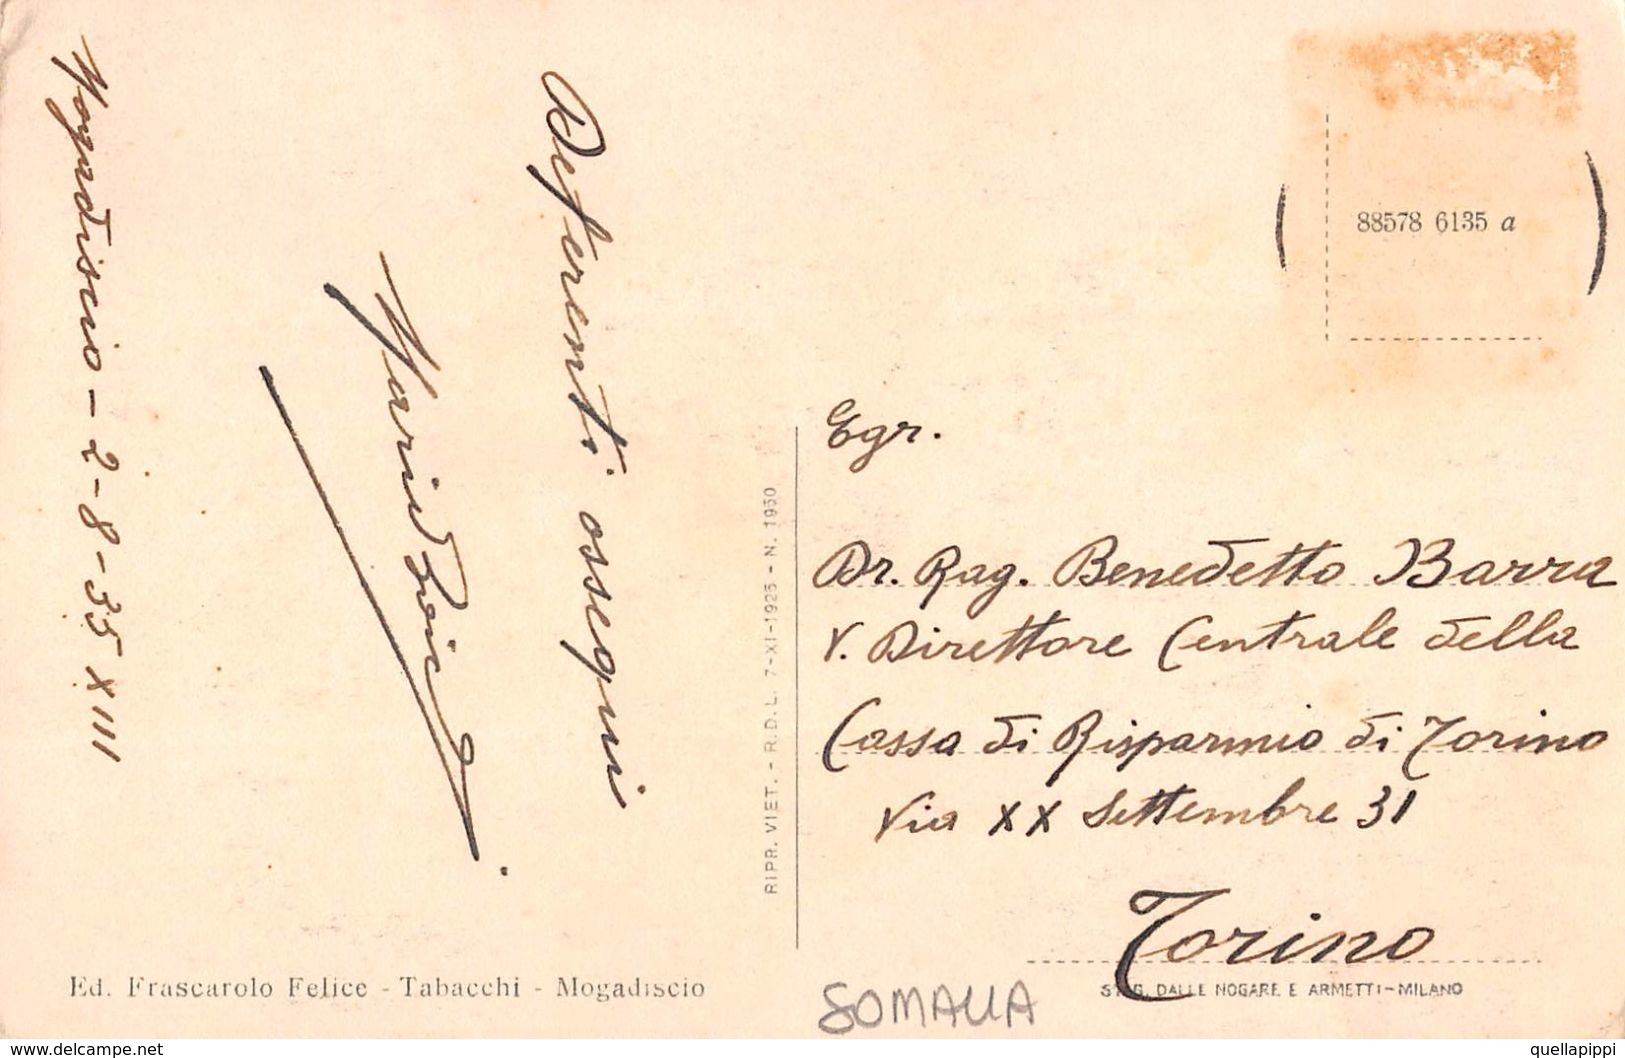 Mogadiscio - 2-8-35 XIII
Deferenti ossequi
Mario
RIPR. VIET. - R.D.L. 7-XI-1925 - N. 1950
88578 6135 a
Egr.
Dr. Rag. Benedetto Barra
V. Direttore Centrale della
Cassa di Risparmio di Torino
Via XX Settembre 31
Torino
Ed. Frascarolo Felice - Tabacchi - Mogadiscio
DALLE NOGARE E ARMETTI - MILANO
SOMALIA
www.delcampe.net
quellapippi